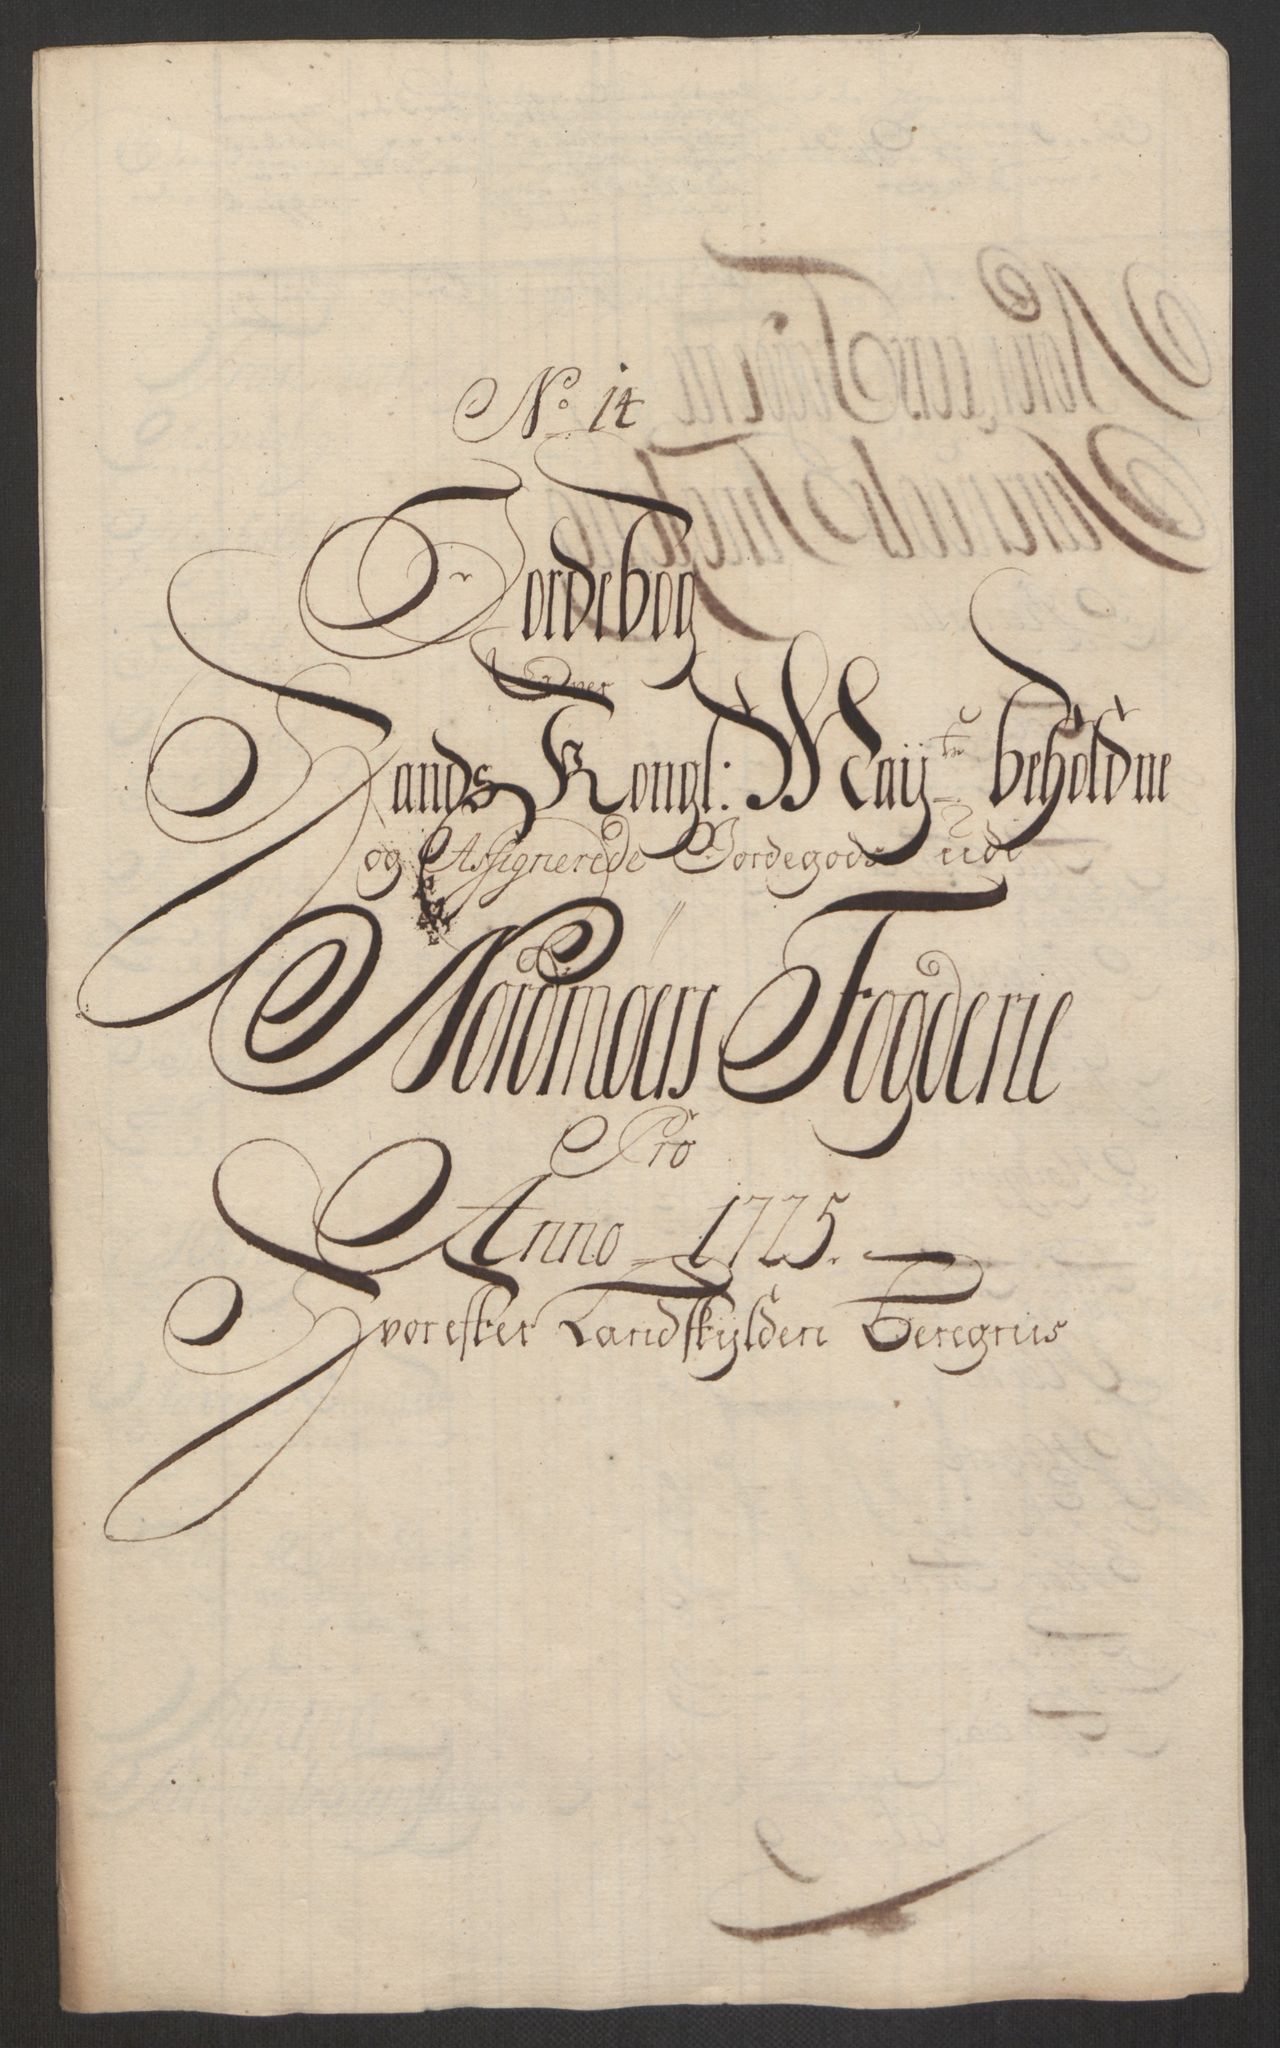 No: 14
Jordebog
Ofver
Hands Kongl: Maÿtz behoLdne
og Assignerede Jordegods udi
Nordmoers Fogderie
Pro
Anno 1725.
Hvorefter Landskylden Beregnis